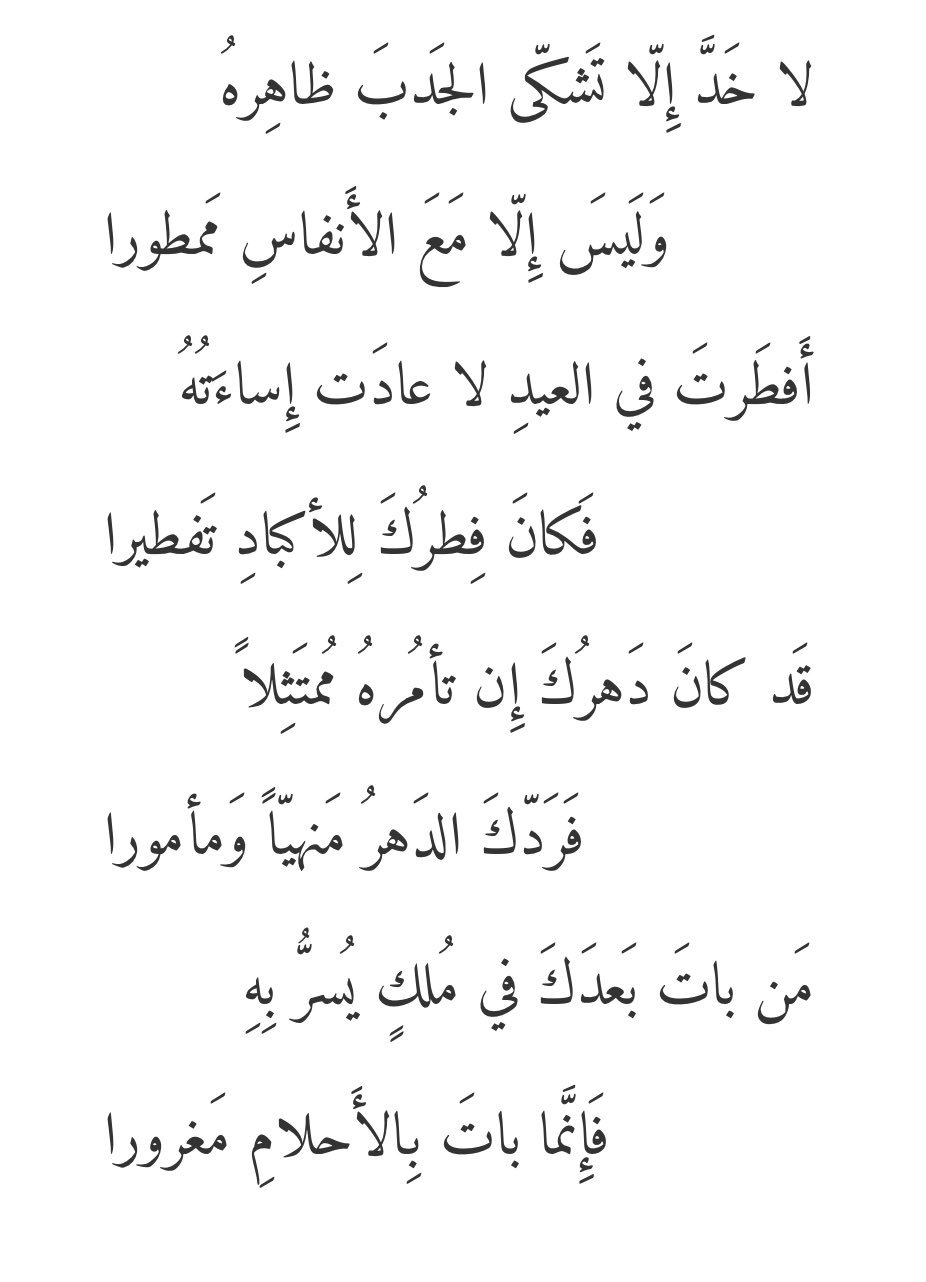 لا خَدَّ إِلّا تَشكّى الجَدبَ ظاهِرهُ
وَلَيسَ إِلّا مَعَ الأَنفاسِ مَمطورا
أَفطَرتَ في العيدِ لا عادَت إِساءَتُهُ
فَكانَ فِطرُكَ لِلأكبادِ تَفطيرا
قَد كانَ دَهرُكَ إِن تأمُرهُ مُمتَثِلاً
فَرَدّكَ الدَهرُ مَنهيّاً وَمأمورا
مَن باتَ بَعدَكَ في مُلكٍ يُسرُّ بِهِ
فَإِنَّما باتَ بِالأَحلامِ مَغرورا